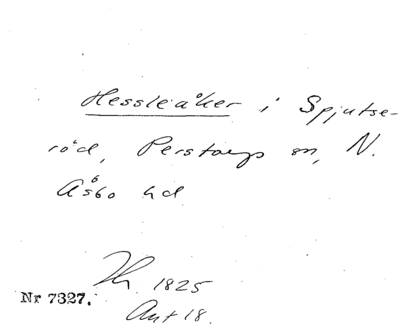 Hessleåker i Spjutse-
röd, Perstorps sn, N.
Åsbo hd
1825
Nr 7327.
Akt 18.